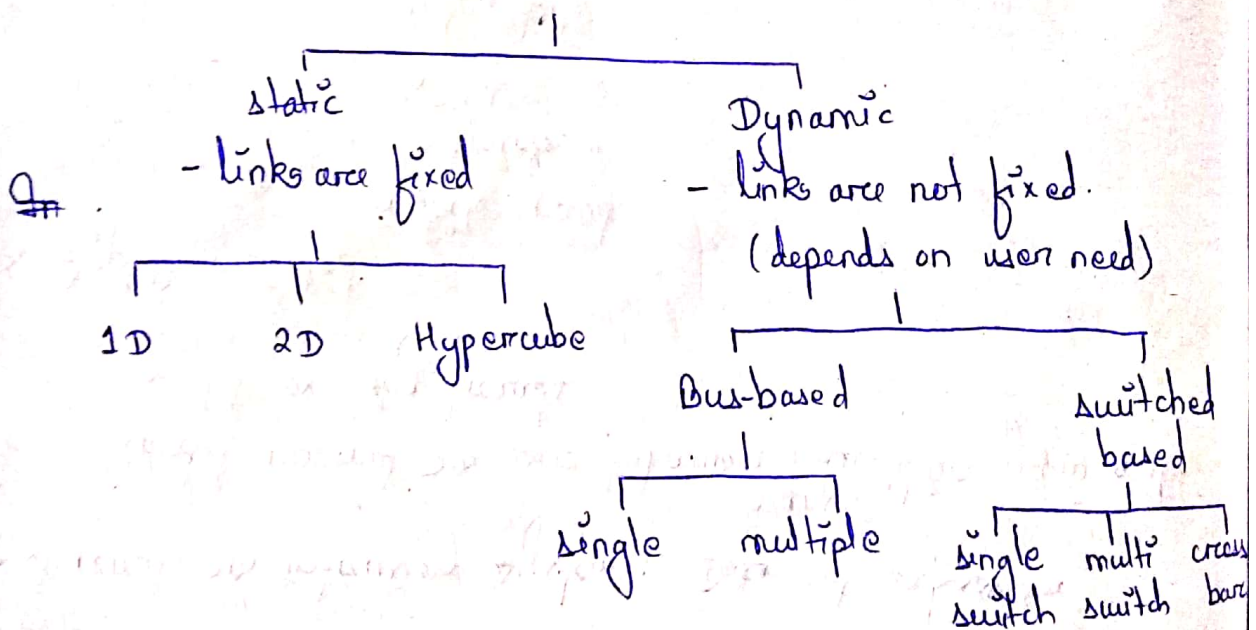 static
- links are fixed
Dynamic
- links are not fixed.
(depends on user need)
1D 2D Hypercube
Bus-based
switched
based
single multiple
single switch
multi switch
cross bar